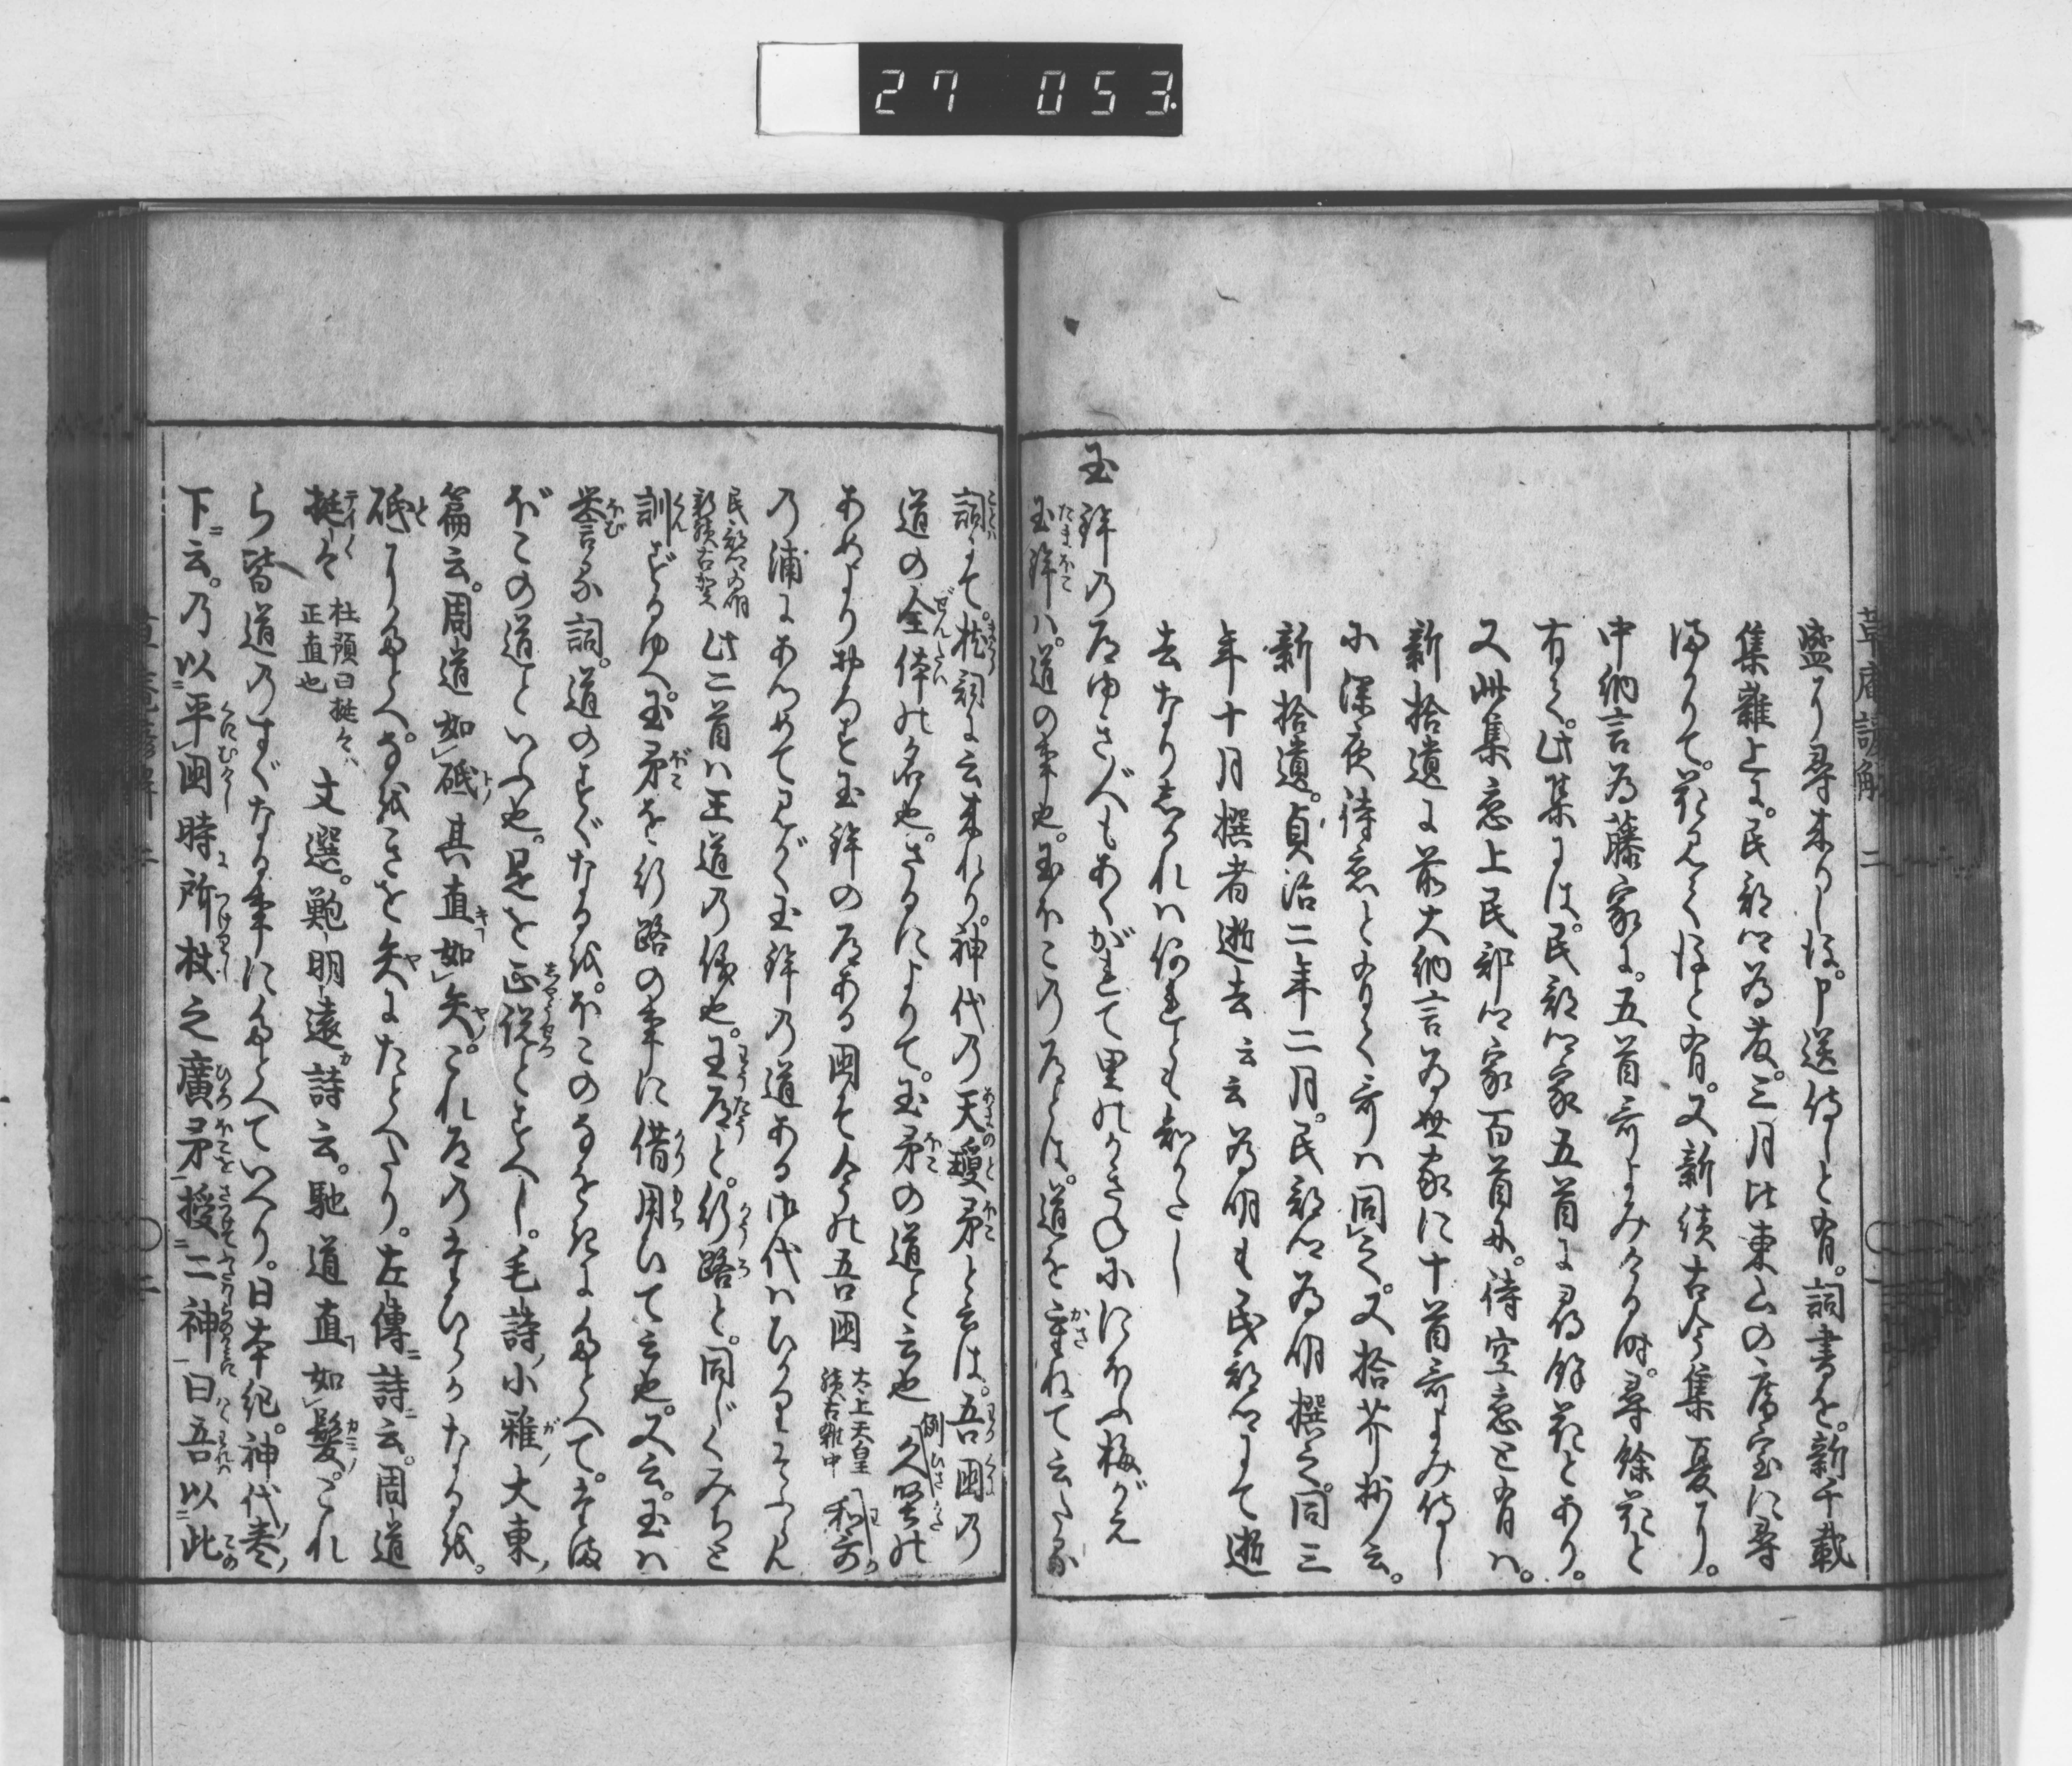 27 053
草庵諺解 二
盛り尋来りし後。申送侍しと有。詞書を。新千載
集雑上に。民部卿為藤。三月比東山の庵室に尋
まかりて。花見て後と有。又新続古今集夏に。
中納言為藤家に。五首哥よみける時。尋餘花と
有て。此集には。民部卿家五首に尋餘花とあり。
又此集恋上民部卿家百首に。待空恋と有は。
新拾遺に前大納言為世家に十首哥よみ侍し
に深夜待恋とありて哥は同之。又拾芥抄云。
新拾遺。貞治二年二月。民部卿為明撰之。同三
年十月撰者逝去云云為明も民部卿にて逝
去なりしかれは何れとも知かたし
玉鉾の道ゆき人もあくがれて里のかきねににほふ梅がえ
玉鉾ハ。道の事也。玉ほこの道とは。道を重ねて云たる
詞にて。枕詞に云来れり。神代の天瓊矛と云は。吾国の
道の全体の名也。さるによりて。玉矛の道と云也 例 久堅の
あめより おろす玉鉾の道ある国そ今の吾国 太上天皇 続古雑中 和哥
の浦にあつめてみがく玉鉾の道ある御代はひかりそふらん
民部卿為明 新続古賀 此二首ハ王道の儀也。王道と。行路と。同じくみちと
訓ずるゆへ。玉矛を行路の事に借用いて云也。又云。玉は
誉言る詞。道のすぐなるを。ほこのなをきにたとへて。玉
ぼこの道といふ也。是を正説とすへし。毛詩小雅大東
篇云。周道如砥其直如矢。これ道のたいらかなるを。
砥にたとへ。なをきを矢にたとへたり。左傳詩云。周道
挺々 杜預曰挺々ハ 正直也 文選。鮑明遠詩云。馳道直如髪。これ
ら皆道のすぐなる事にたとへていへり。日本紀。神代巻
下云。乃以平国時所杖之廣矛授二神曰吾以此